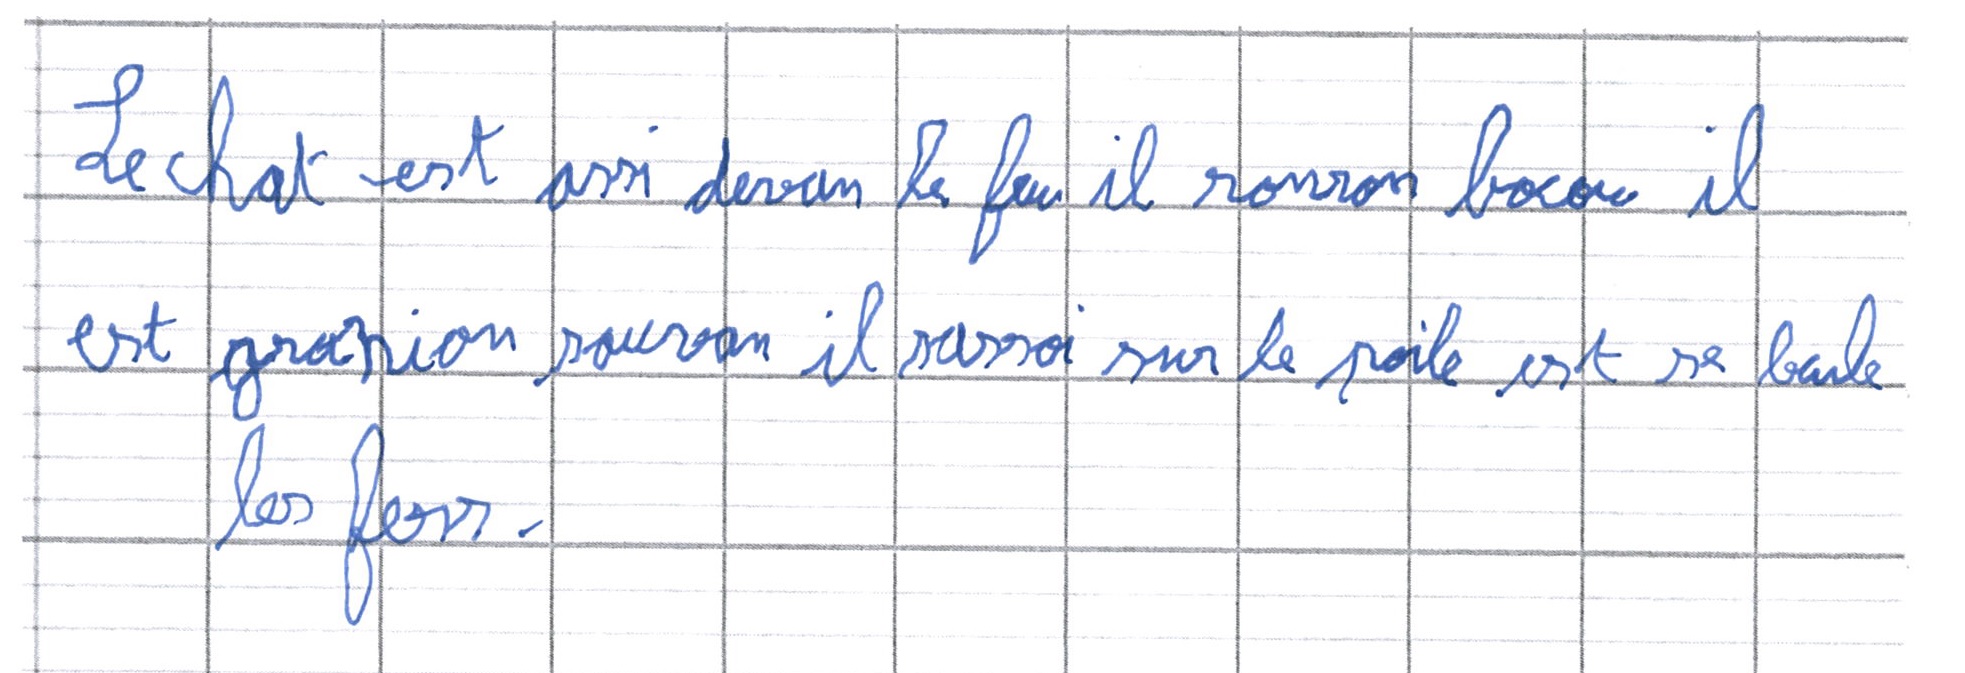 Le chat est assi devan le feu il ronron bocou il
est granion souvan il sassoi sur le poile est se barle
les fess.